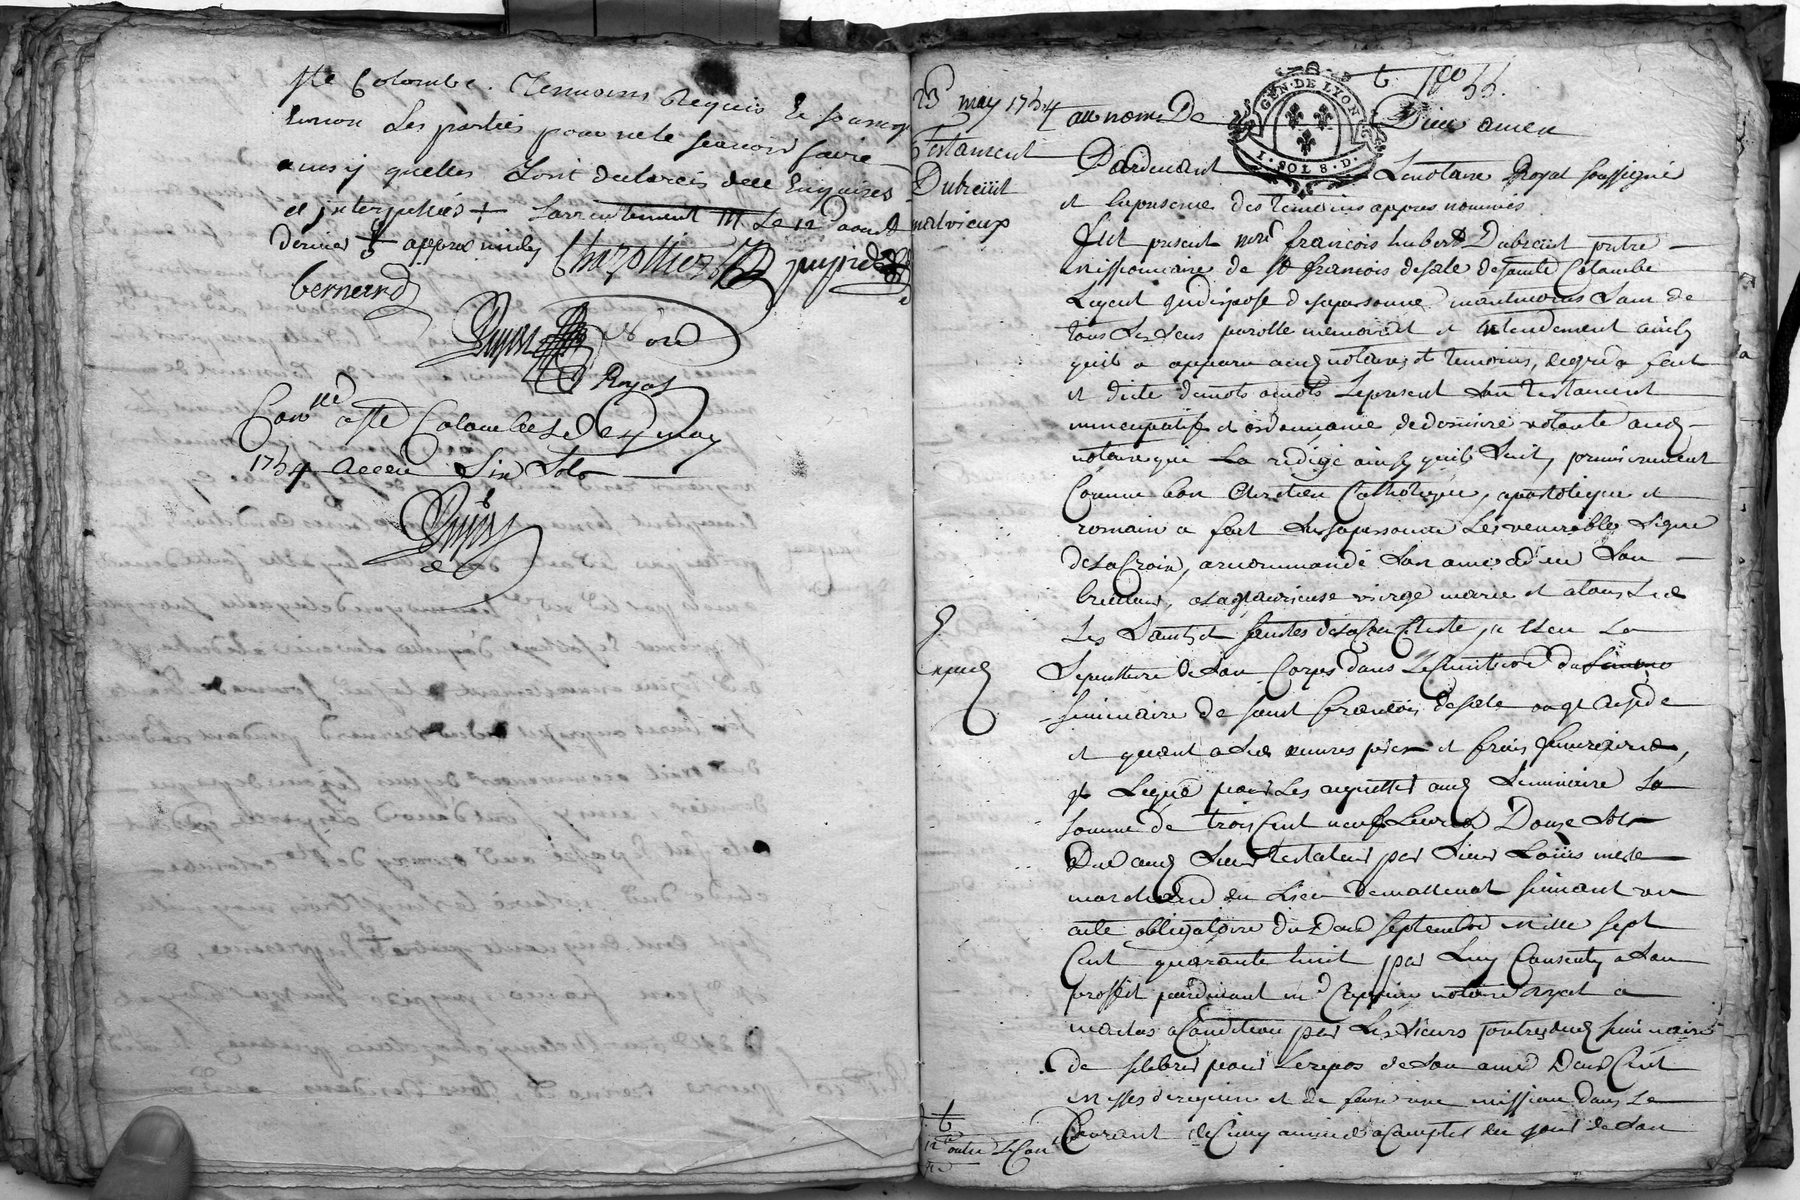 Ste Colombe. Temoins Requis le soussigné
sinon les parties pour ne le scavoir faire
ainsy quelles sont declarées de ce Enquises
et interpellées + larrentement /// Le 12 aoust
dernier + approuvés
Chazottier
bernard
Puy
Nore
Royal
Con.lle a Ste Colombe Le 24 may
1754 Receu Six Sols
Puy
23 may 1754
Testament
Dubreüil
malvieux
Expedié
t. No 55.
GEN·DE LYON
I·SOLS·D·
au nom De Dieu amen
Pardevant Le notaire Royal soussigné
et en presence des temoins appres nommés
fut present mre francois hubert Dubreüil prêtre
missionnaire de St francois de sale de sainte Colombe
Lequel indispose de sa personne neantmoins sain de
tous ses sens parolle memoire et entendement ainsy
quil a apparu aud notaire et temoins, de gré a fait
et dicté de mots a mots le present son testament
nuncupatif et ordonnance de derniere volonté aud
notaire qui La redigé ainsy quil suit, premierement
Comme bon Chretien Catholique, apostolique et
romain a fait sur sa personne Le venerable signe
de la Croix, a recommandé son ame a dieu son
Createur, a la glorieuse vierge marie et a tous
Les saints et saintes de la Cour Celeste, a Eleu La
Sepulture de son Corps dans Le Cimetiere du
seminaire de saint francois de sale ou il reside
et quant a ses œuvres pies et frais funeraires,
il Legue pour Les acquitter aud Seminaire La
somme de trois Cent neuf Livres Douze sols
Due aud Sieur testateur par Sieur Loüis
marchand du Lieu de suivant un
acte obligatoire du Deux septembre mille sept
Cent quarante huit par Luy Consenty a son
proffit pardevant notaire royal a
a Condition par Les sieurs prêtres dud seminaire
de selebrer pour Le repos de son ame Deux Cent
messes de requiem et de faire une mission dans Le
Courant de Cinq années a Compter du jour de son